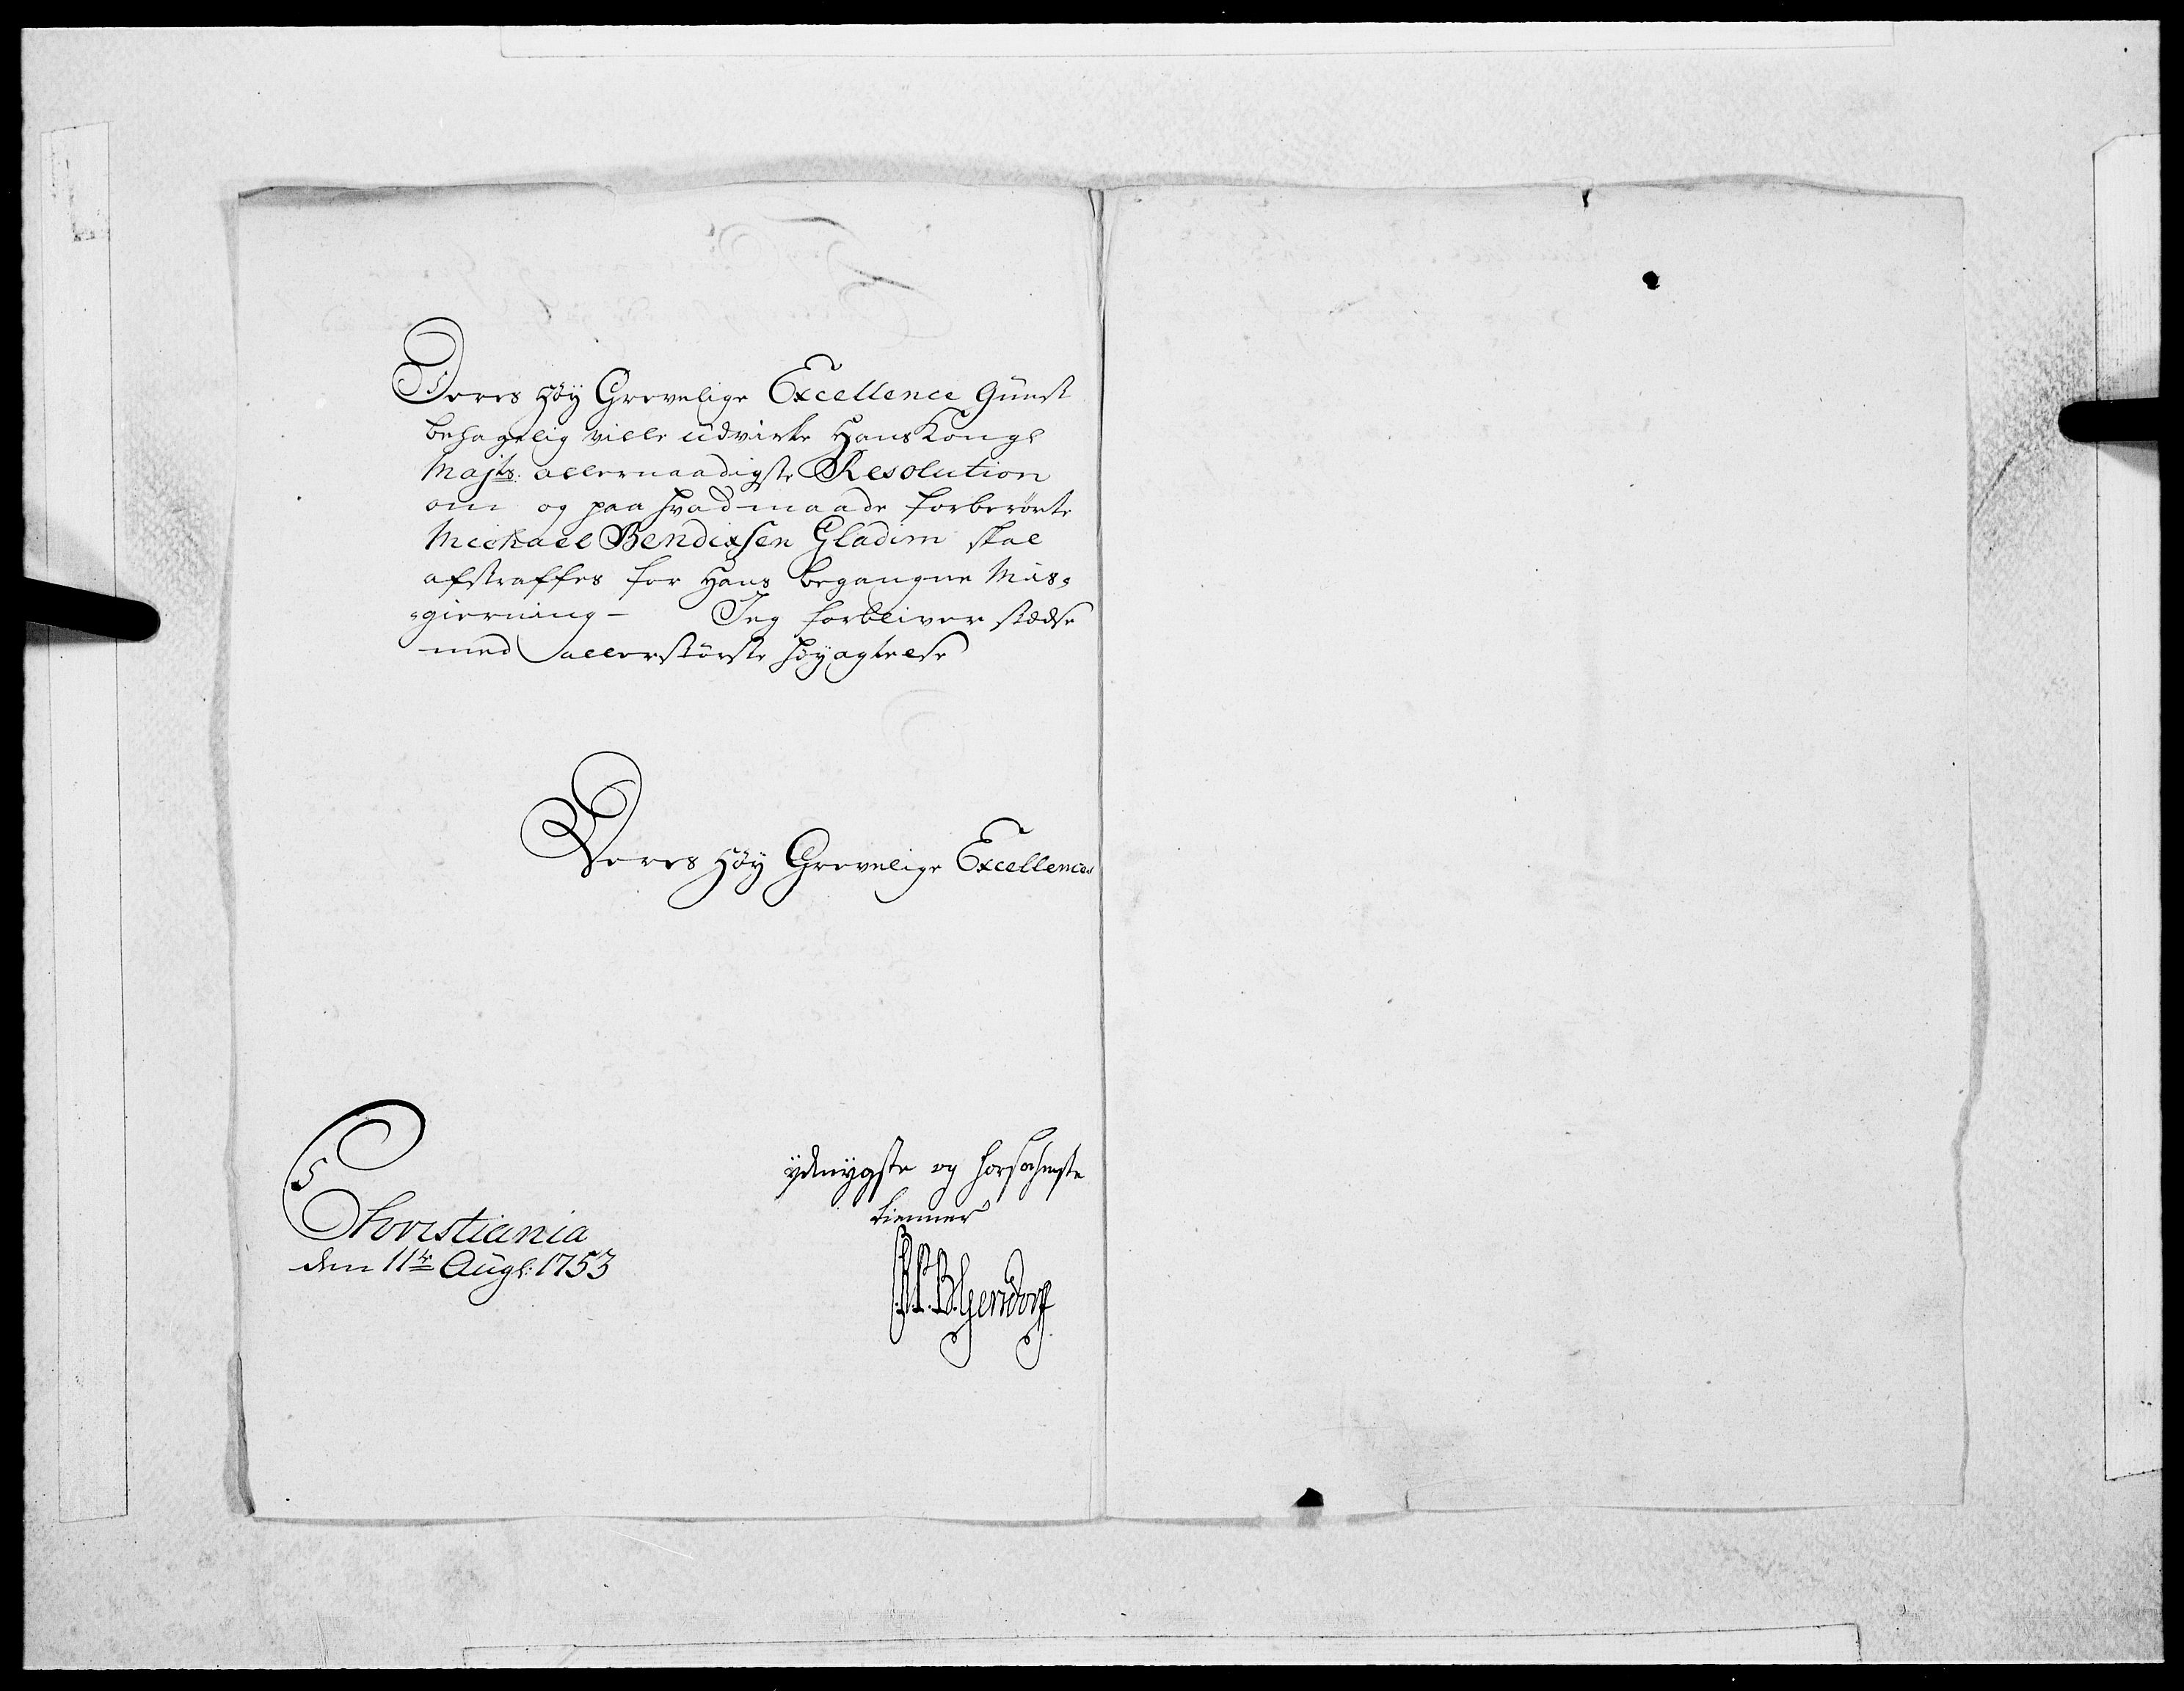 Deres Høy Grevelige Excellence Gunst
behagelig ville udvirke Hans Kongl
Majts: allernaadigste Resolution
om og paa hvad maade forberørte
Michael Bendixsen Gladim skal
afstraffes for Hans begangne Mis-
-gierning - Jeg forbliver stædse
med allerstørste Høyagtelse
Deres Høy Grevelige Excellences
ydmygste og
tienner
Christiania
den 11te Augt: 1753